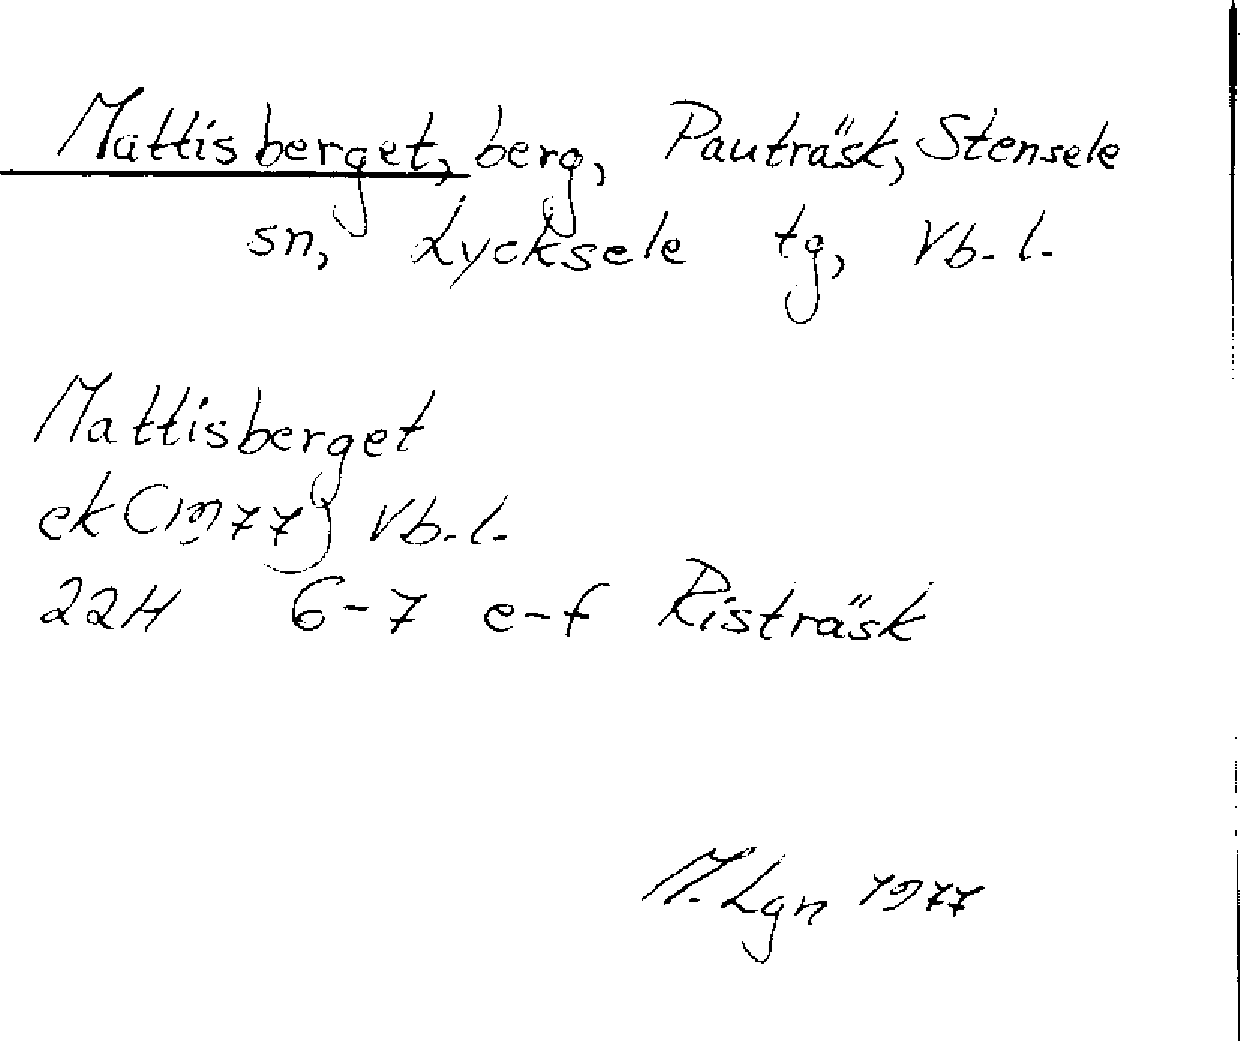 Mattisberget, berg, Pauträsk, Stensele
sn, Lycksele tg, Vb. l.
Mattisberget
ek (1977) Vb. l.
22H 6-7 e-f Risträsk
M. Lgn 1977